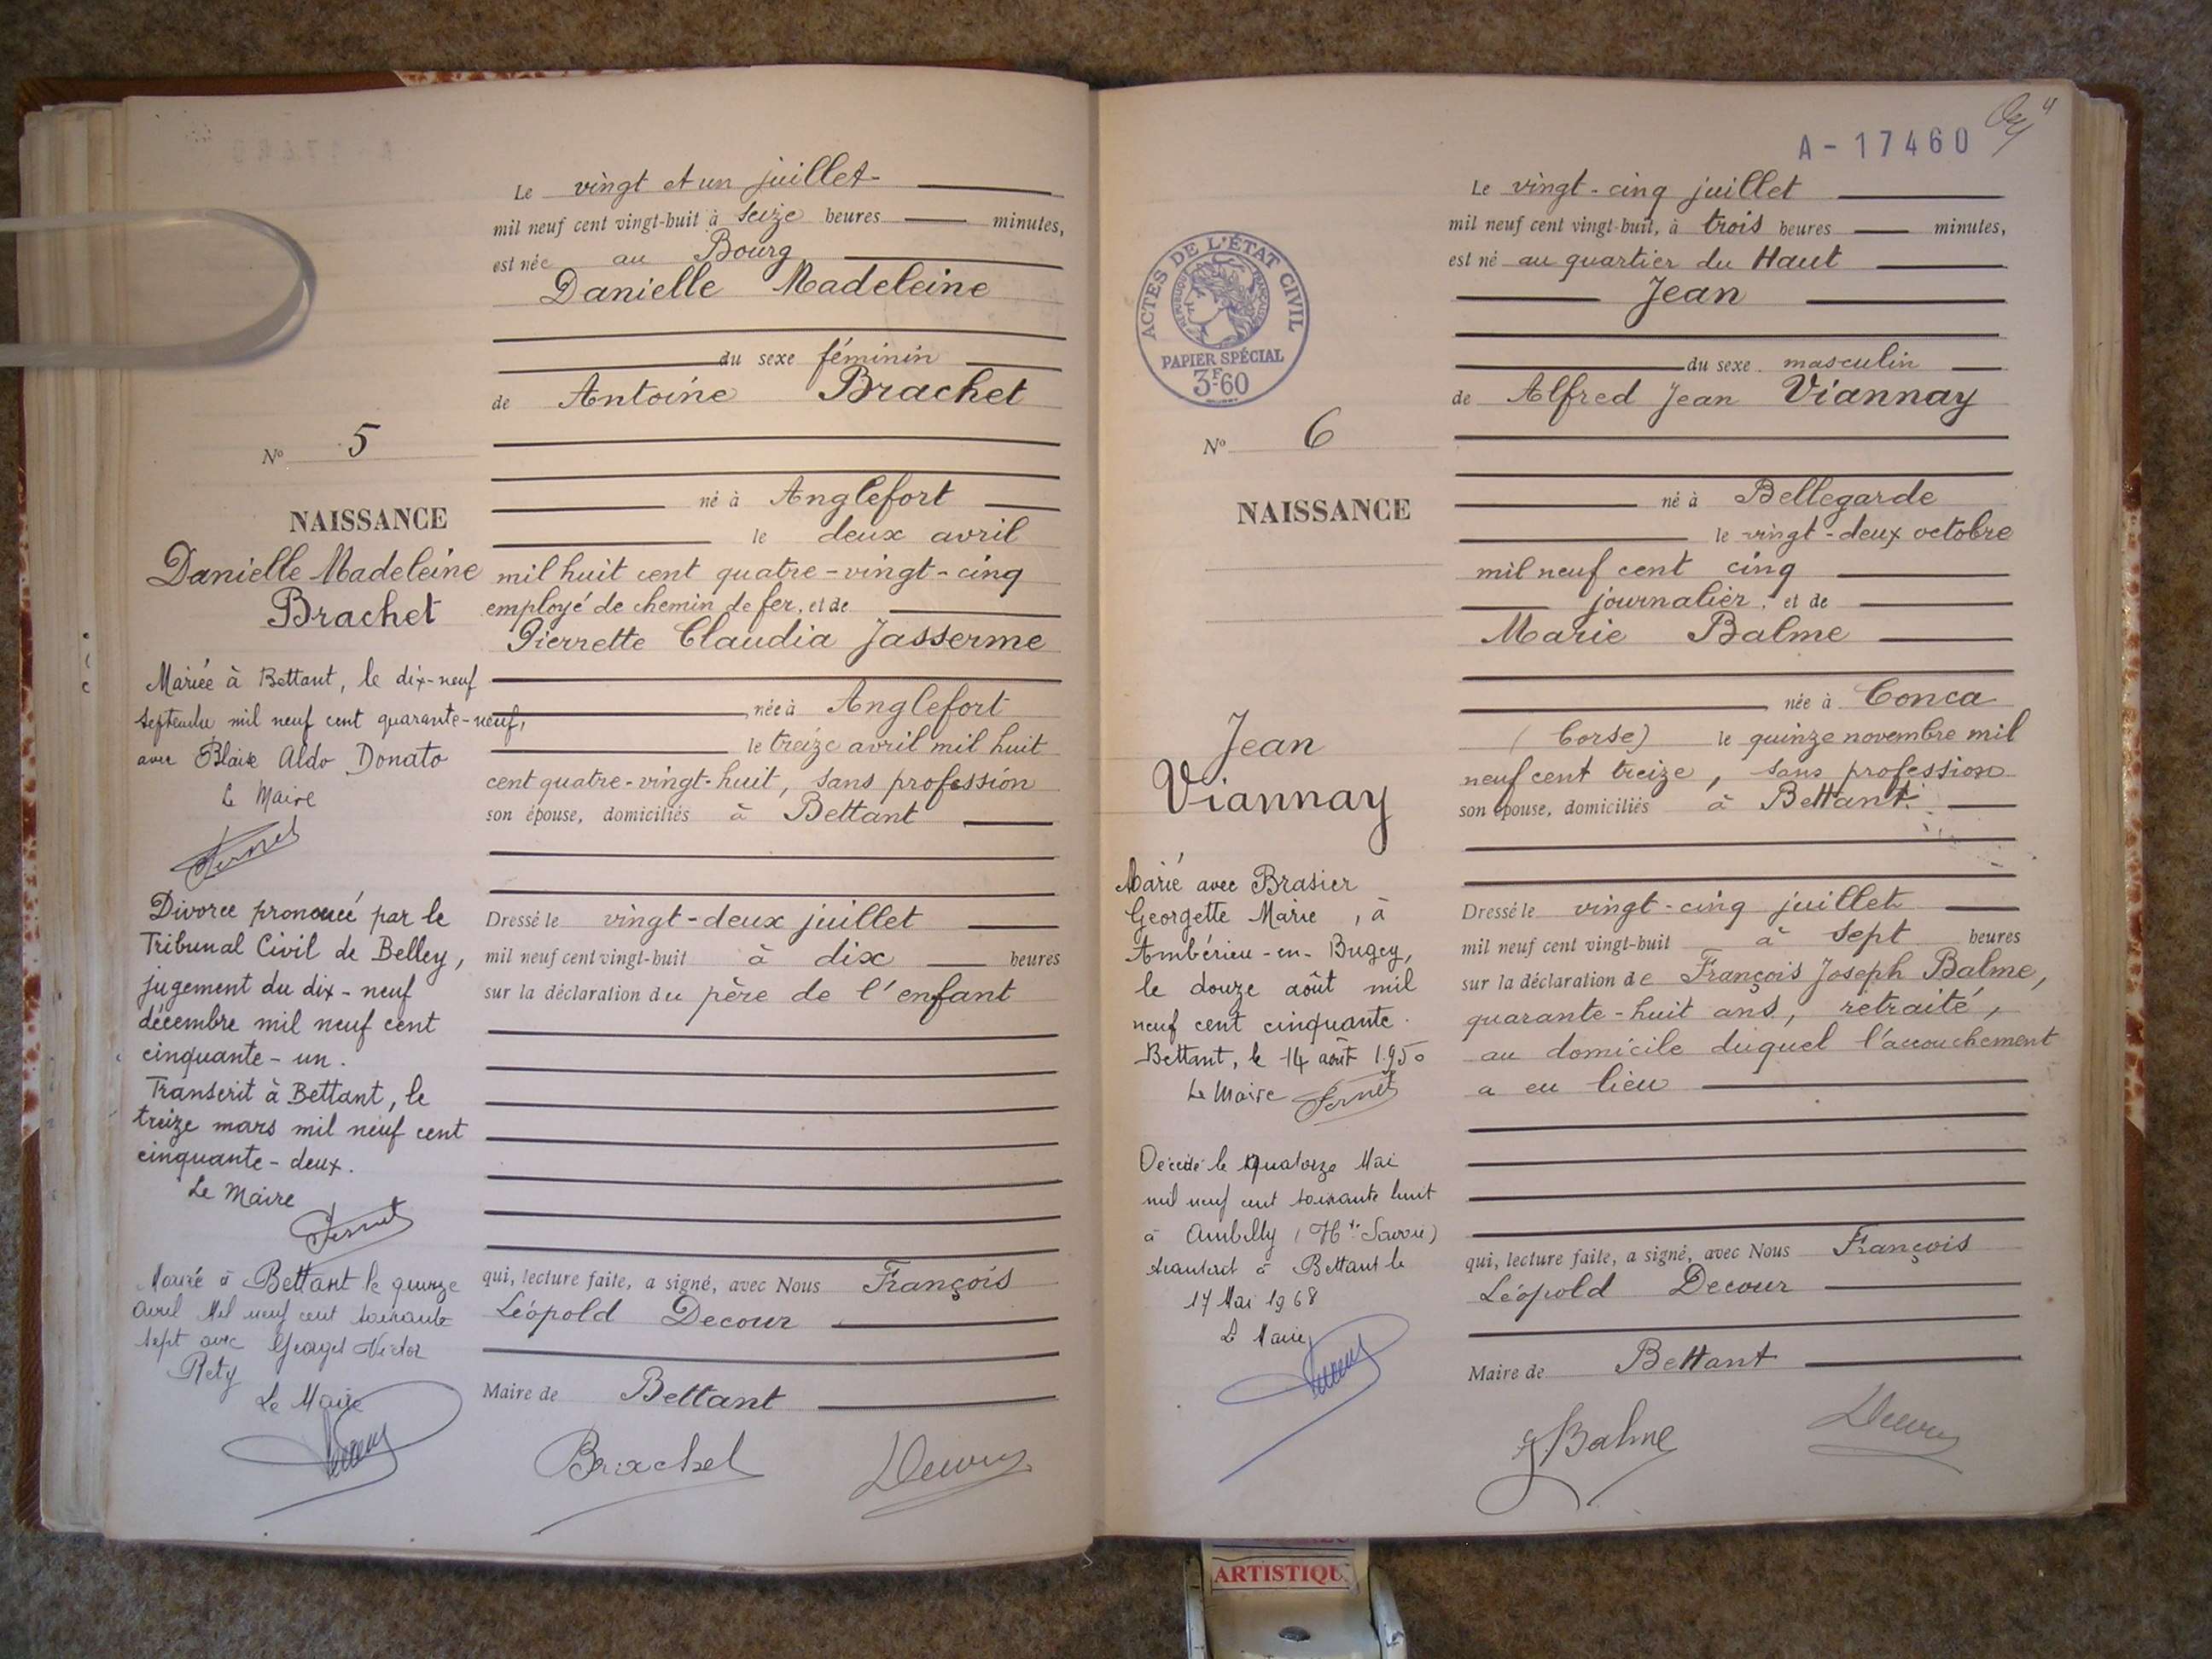 Le vingt et un juillet
mil neuf cent vingt-huit à seize heures minutes,
est née au Bourg
Danielle Madeleine
du sexe féminin
de Antoine Brachet
N° 5
né à Anglefort
NAISSANCE
le deux avril
Danielle Madeleine
Brachet
mil huit cent quatre-vingt-cinq
employé de chemin de fer, et de
Pierrette Claudia Jasserme
Mariée à Bettant, le dix-neuf
septembre mil neuf cent quarante-neuf,
avec Blaise Aldo Donato
Le Maire
née à Anglefort
le treize avril mil huit
cent quatre-vingt-huit, sans profession
son épouse, domiciliés à Bettant
Divorce prononcé par le
Tribunal Civil de Belley,
jugement du dix-neuf
décembre mil neuf cent
cinquante-un.
Transcrit à Bettant, le
treize mars mil neuf cent
cinquante-deux.
Le Maire
Dressé le vingt-deux juillet
mil neuf cent vingt-huit à dix heures
sur la déclaration du père de l'enfant
Mariée à Bettant le quinze
Avril Mil neuf cent soixante
sept avec Georges Victor
Rety
Le Maire
qui, lecture faite, a signé, avec Nous François
Léopold Decour
Maire de Bettant
Brachet
Decour
A-17460
Le vingt-cinq juillet
mil neuf cent vingt-huit, à trois heures minutes,
est né au quartier du Haut
Jean
ACTES DE L'ÉTAT CIVIL
RÉPUBLIQUE FRANÇAISE
PAPIER SPÉCIAL
3F60
du sexe masculin
de Alfred Jean Viannay
N° 6
né à Bellegarde
NAISSANCE
le vingt-deux octobre
mil neuf cent cinq
journalier, et de
Marie Balme
née à Conca
Jean
Viannay
(Corse) le quinze novembre mil
neuf cent treize, sans profession
son épouse, domiciliés à Bettant
Marié avec Brasier
Georgette Marie, à
Ambérieu-en-Bugey,
le douze août mil
neuf cent cinquante.
Bettant, le 14 août 1950
Le Maire
Dressé le vingt-cinq juillet
mil neuf cent vingt-huit à sept heures
sur la déclaration de François Joseph Balme,
quarante-huit ans, retraité,
au domicile duquel l'accouchement
a eu lieu
Décédé le quatorze Mai
mil neuf cent soixante huit
à Ambilly (Hte Savoie)
transcrit à Bettant le
17 Mai 1968
Le Maire
qui, lecture faite, a signé, avec Nous François
Léopold Decour
Maire de Bettant
Balme
Decour
ARTISTIQU